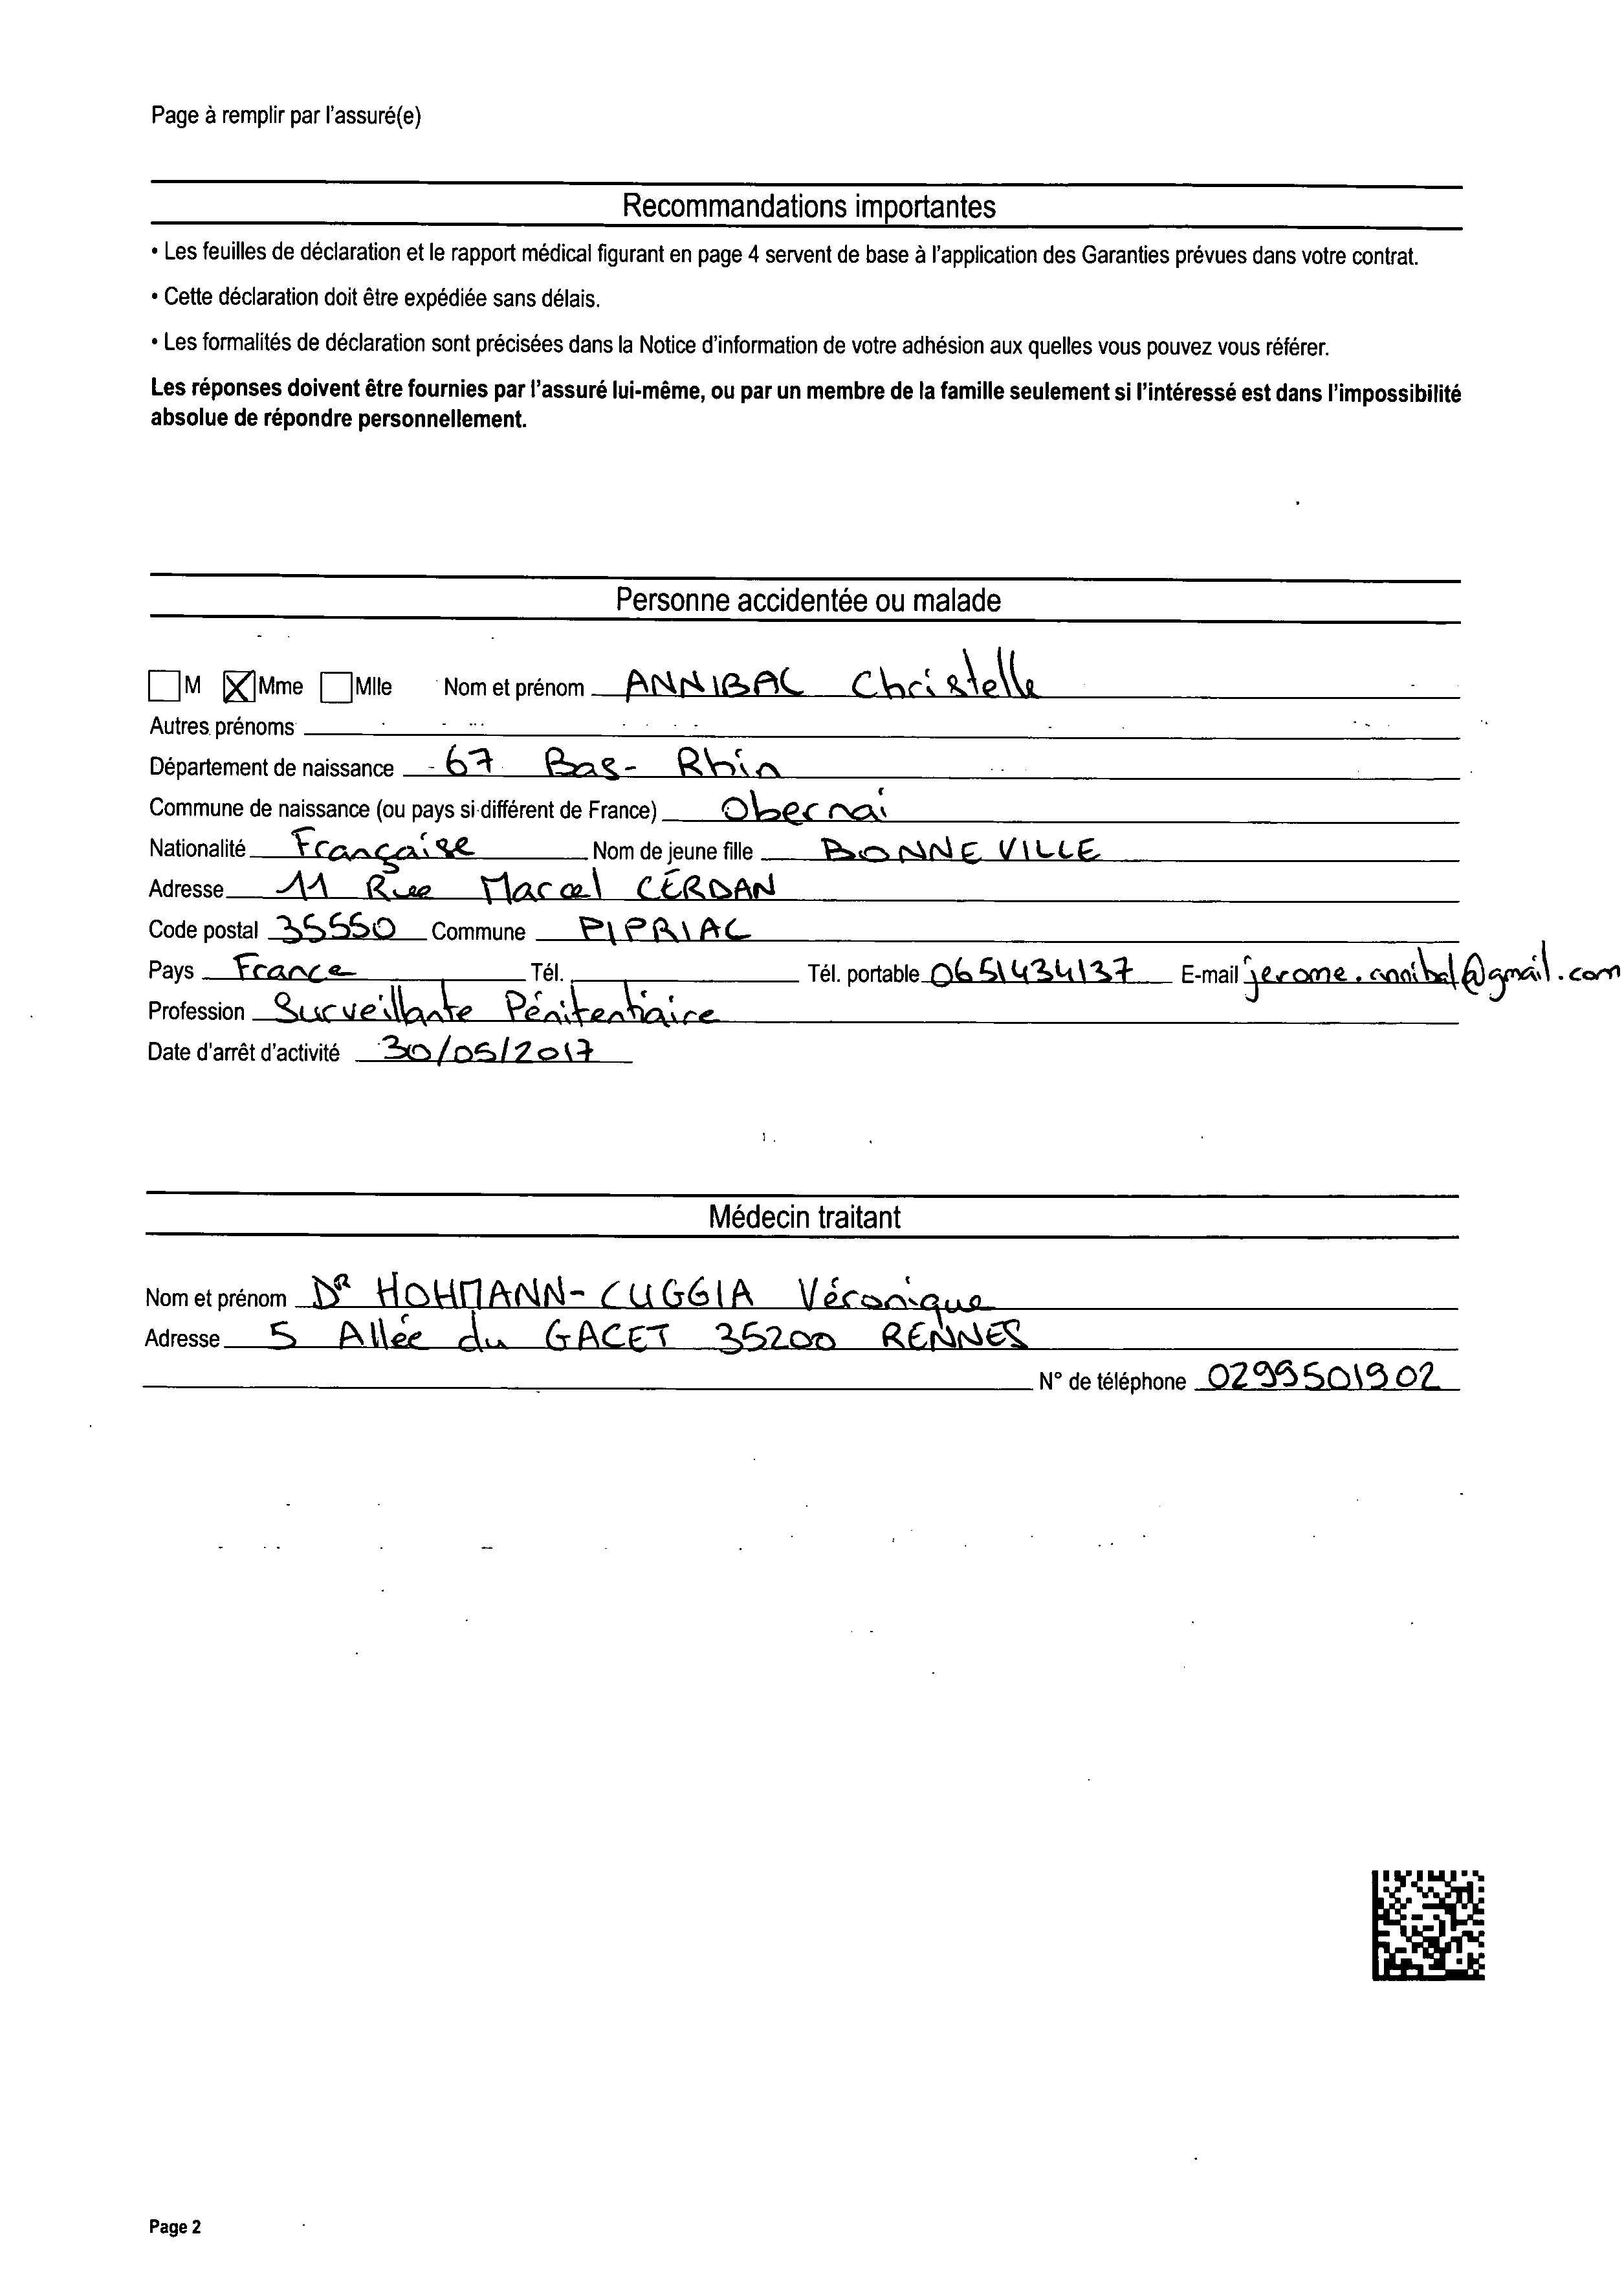 Page à remplir par l'assuré(e)
Recommandations importantes
• Les feuilles de déclaration et le rapport médical figurant en page 4 servent de base à l'application des Garanties prévues dans votre contrat.
• Cette déclaration doit être expédiée sans délais.
• Les formalités de déclaration sont précisées dans la Notice d'information de votre adhésion aux quelles vous pouvez vous référer.
Les réponses doivent être fournies par l'assuré lui-même, ou par un membre de la famille seulement si l'intéressé est dans l'impossibilité
absolue de répondre personnellement.
Personne accidentée ou malade
M Mme Mlle Nom et prénom ANNIBAL Christelle
Autres prénoms
Département de naissance 67 Bas-Rhin
Commune de naissance (ou pays si différent de France) Obernai
Nationalité Française Nom de jeune fille BONNEVILLE
Adresse 11 Rue Marcel CERDAN
Code postal 35550 Commune PIPRIAC
Pays France Tél. Tél. portable 0651434137 E-mail jerome.annibal@gmail.com
Profession Surveillante Pénitentiaire
Date d'arrêt d'activité 30/05/2017
Médecin traitant
Nom et prénom DR HOHMANN-CUGGIA Véronique
Adresse 5 Allée du GACET 35200 RENNES
N° de téléphone 0299501902
Page 2